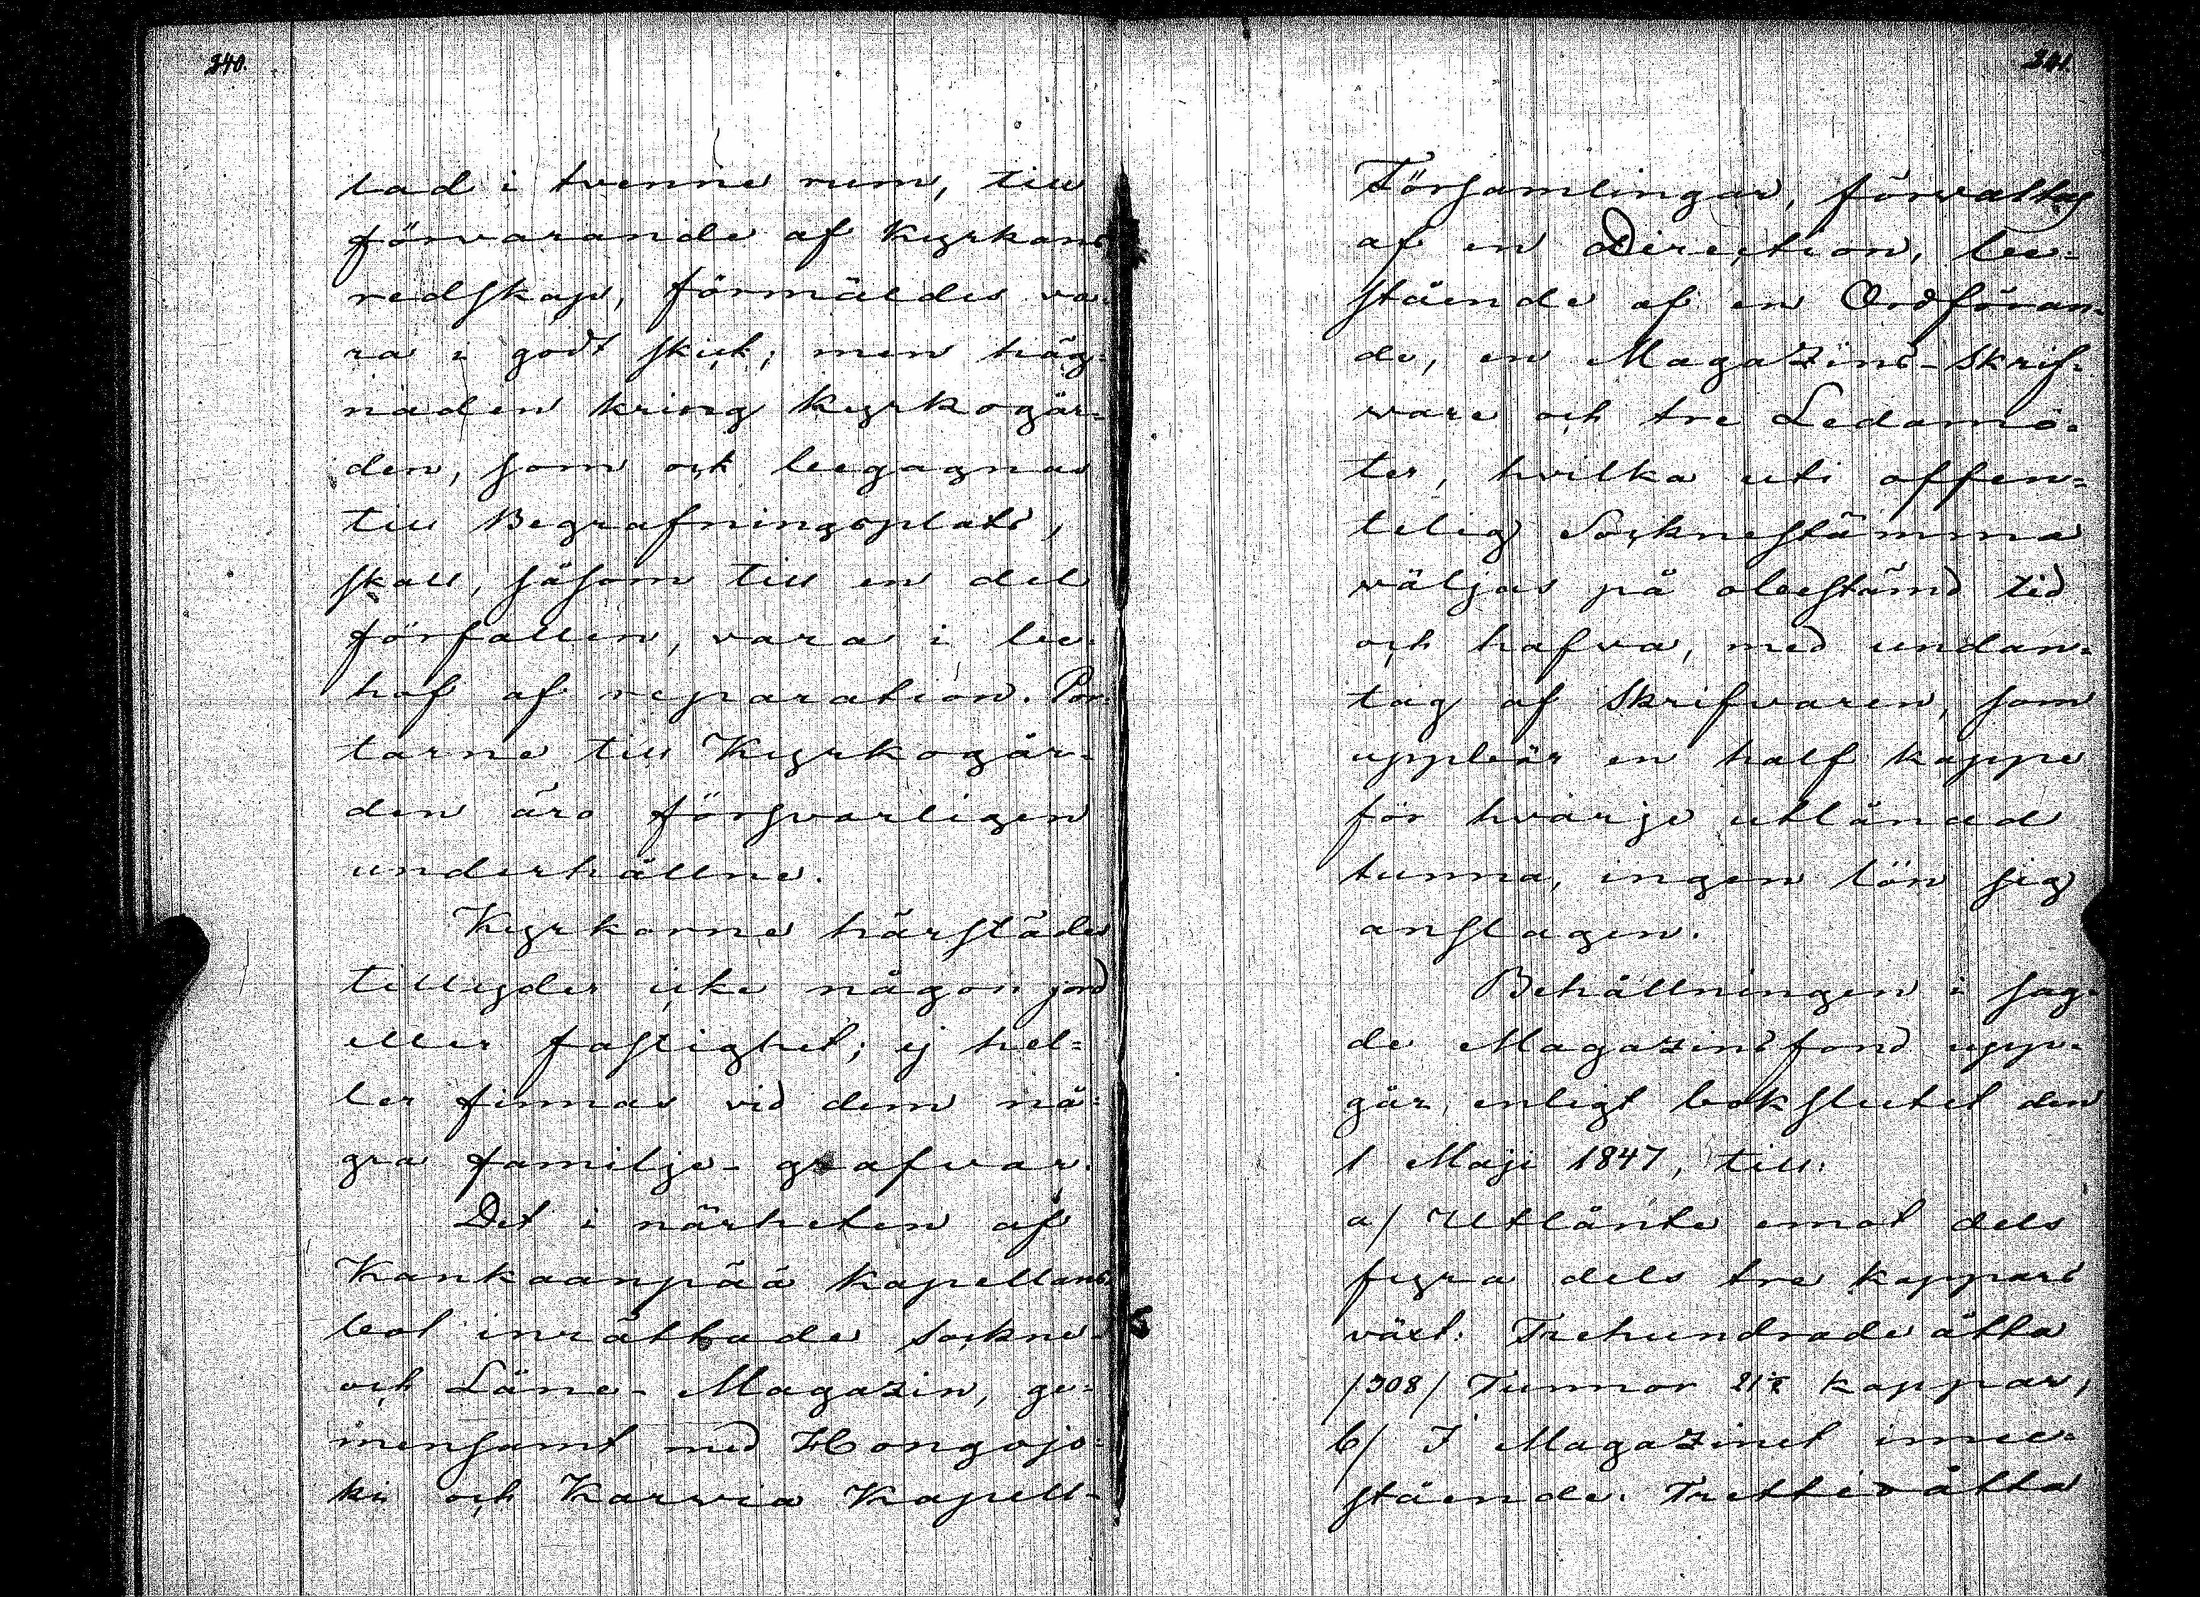 240.
lad i tvenne rum, till
förvarande af Kyrkans
redskap, förmäldes va-
ra i godt skick; men häg-
naden kring Kyrkogår-
den, som ock begagnas
till Begrafningsplats,
skall, såsom till en del
förfallen, vara i be-
hof af reparation. Por-
tarne till Kyrkogår-
den äro försvarligen
underhållne.
Kyrkorne härstädes
tillyder icke någon jord
eller fastighet; ej hel-
ler finnas vid dem nå-
gra familje-grafvar.
Det i närheten af
Kankaanpää Kapellans-
bol inrättade Sockne-
och Låne-Magazin, ge-
mensamt med Hongojo-
ki och Karvia Kapell-
241.
Församlingar, förvaltas
af en Direction, be-
stående af en Ordföran-
de, en Magazins-Skrif-
vare och tre Ledamö-
ter, hvilka uti offen-
telig Socknestämma
väljas på obestämd tid
och hafva, med undan-
tag af Skrifvaren, som
uppbär en half kappe
för hvarje utlånad
tunna, ingen lön sig
anslagen.
Behållningen i sag-
de Magazinsfond upp-
går, enligt bokslutet den
1 Maji 1847, till:
a/ Utlånte emot dels
fyra dels tre kappars
växt: Trehundrade åtta
/308/ Tunnor kappar,
b/ I Magazinet inne-
stående: Trettioåtta